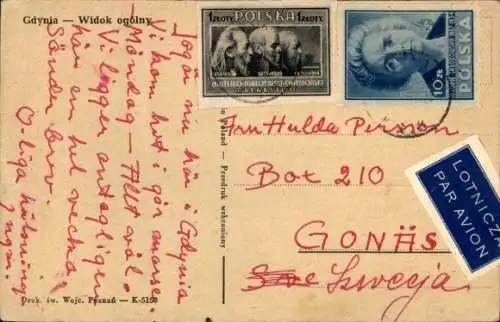 Gdynia — Widok ogólny
nu här i Gdynia
Vi kom hit i går
Måndag — Allt väl.
Vi ligger antagligen
här en hel vecka.
Sänder brev.
hälsning
Druk. św. Wojc. Poznań — K-5150
1 ZŁOTY POLSKA 1 ZŁOTY
POLSKA
10 ZŁ
in Poland — Przedruk wzbroniony
Fru Hulda Persson
Box 210
GONÄS
Szwecja
LOTNICZ
PAR AVION